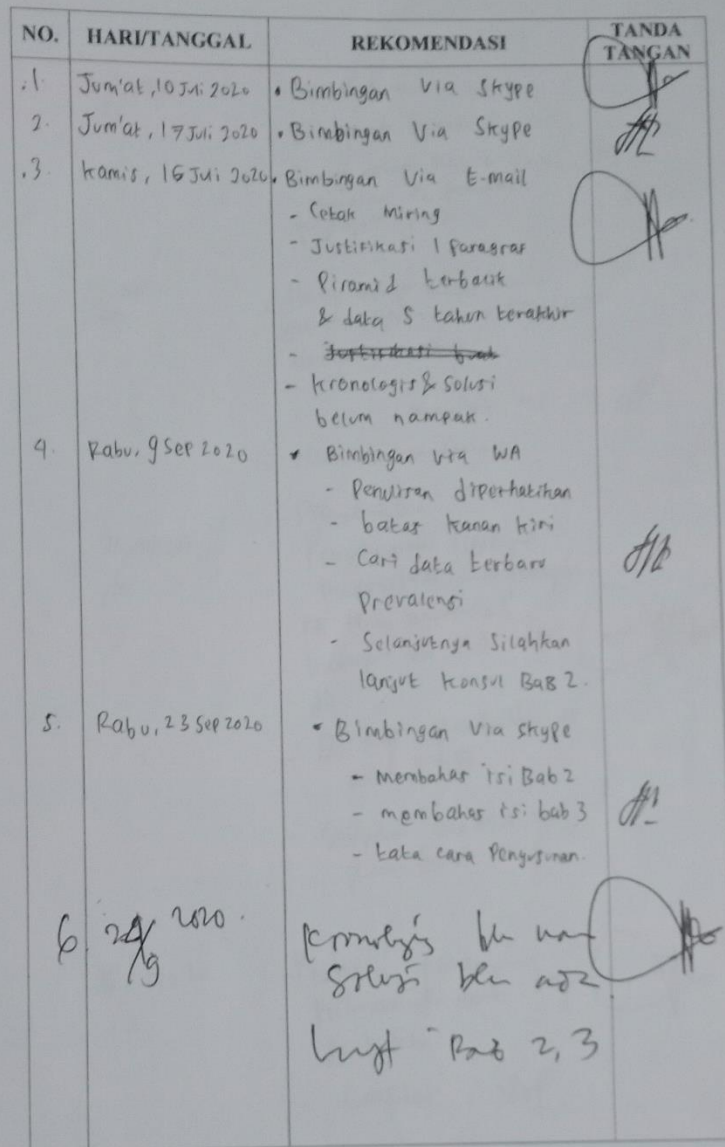 NO. HARI/TANGGAL REKOMENDASI TANDA TANGAN
.1. Jum'at, 10 Juli 2020 • Bimbingan Via Skype
2. Jum'at, 17 Juli 2020 • Bimbingan Via Skype
.3. Kamis, 16 Juli 2020 • Bimbingan Via E-mail
- Cetak Miring
- Justifikasi 1 Paragraf
- Piramid terbalik
& data 5 tahun terakhir
-
- Kronologis & Solusi
belum nampak.
4. Rabu, 9 Sep 2020 • Bimbingan via WA
- Penulisan diperhatikan
- batas kanan kiri
- Cari data terbaru
Prevalensi
- Selanjutnya Silahkan
lanjut Konsul Bab 2.
5. Rabu, 23 Sep 2020 • Bimbingan Via Skype
- Membahas isi Bab 2
- membahas isi bab 3
- tata cara Penyusunan.
6 24/9 2020. Kronologis blm
Solusi blm ada
Bab 2, 3